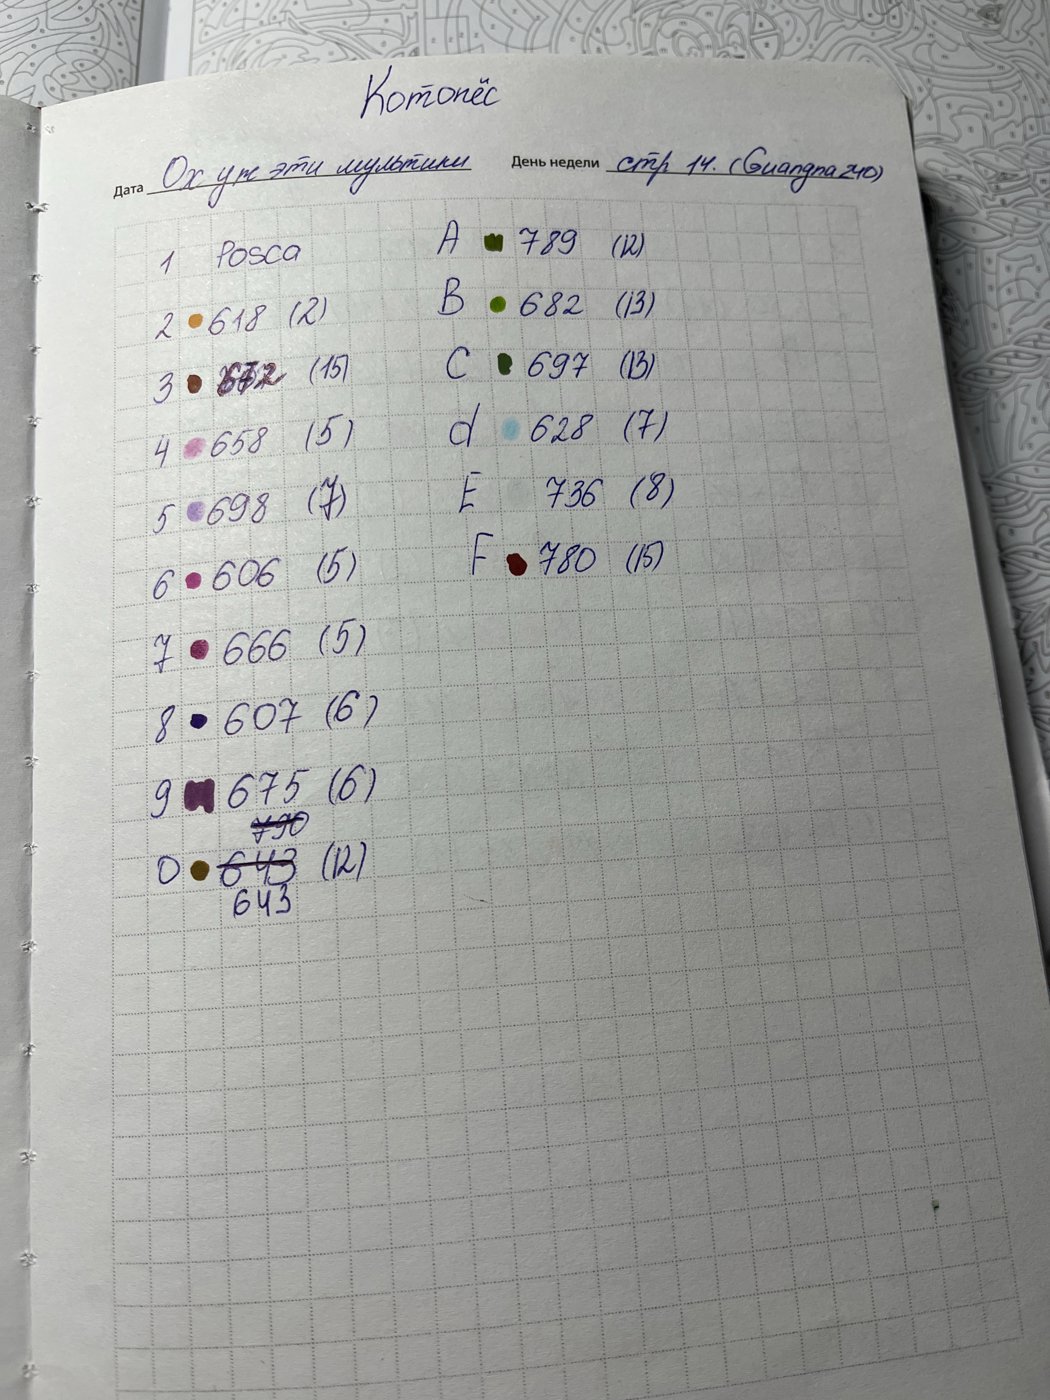 Котопёс
Дата Ох уж эти мультики День недели стр 14. (Guangna 240)
1 Posca
2 618 (2)
3 672 (15)
4 658 (5)
5 698 (7)
6 606 (5)
7 666 (5)
8 607 (6)
9 675 (6)
790
0 643 (12)
643
A 789 (12)
B 682 (13)
C 697 (13)
d 628 (7)
E 736 (8)
F 780 (15)